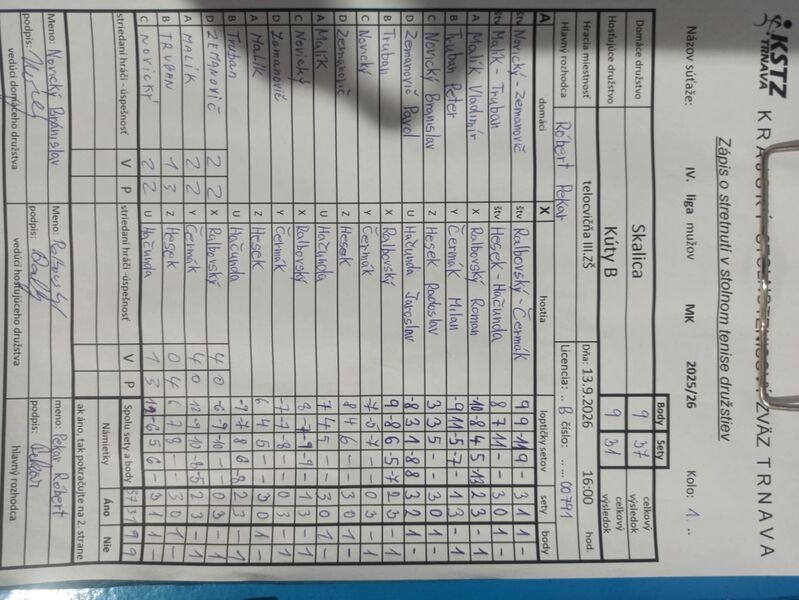 KSTZ TRNAVA KRAJSKÝ STOLNOTENISOVÝ ZVÄZ TRNAVA
Zápis o stretnutí v stolnom tenise družstiev
Názov súťaže: IV. liga mužov MK 2025/26 Kolo: 1. ..
Body Sety
Domáce družstvo Skalica 9 37 celkový výsledok
Hosťujúce družstvo Kúty B 9 31 celkový výsledok
Hracia miestnosť telocvičňa III.ZŠ Dňa: 13.9.2026 16:00 hod.
Hlavný rozhodca Róbert Pekar Licencia: .. B číslo: .. ... 00791
A domáci X hostia loptičky setov sety body
štv Novický - Zemanovič štv Ralbovský - Čermák 9 9 -11 9 - 3 1 1 -
štv Malík - Truban štv Hesek - Hačunda 8 7 11 - - 3 0 1 -
A Malík Vladimír X Ralbovský Roman -10 -8 4 5 -13 2 3 - 1
B Truban Peter Y Čermák Milan -9 11 -5 -7 - 1 3 - 1
C Novický Branislav Z Hesek Radoslav 3 3 5 - - 3 0 1 -
D Zemanovič Pavol U Hačunda Jaroslav -8 3 1 -8 8 3 2 1 -
B Truban X Ralbovský 9 -8 6 -5 -7 2 3 - 1
C Novický Y Čermák -7 -5 -7 - - 0 3 - 1
D Zemanovič Z Hesek 8 4 6 - - 3 0 1 -
A Malík U Hačunda 7 4 5 - - 3 0 1 -
C Novický X Ralbovský 8 -7 -9 -9 - 1 3 - 1
D Zemanovič Y Čermák -7 -7 -8 - - 0 3 - 1
A Malík Z Hesek 6 4 5 - - 3 0 1 -
B Truban U Hačunda -9 -7 8 6 -8 2 3 - 1
D ZEMANOVIČ 2 2 X Ralbovský 4 0 -6 -9 -10 - - 0 3 - 1
A MALÍK 2 2 Y Čermák 4 0 12 -9 -10 8 -5 2 3 - 1
B TRUBAN 1 3 Z Hesek 0 4 6 7 8 - - 3 0 1 -
C NOVICKÝ 2 2 U Hačunda 1 3 12 -6 5 6 - 3 1 1 -
striedaní hráči - úspešnosť V P striedaní hráči -úspešnosť V P Spolu sety a body 37 31 9 9
Námietky Áno Nie
ak áno, tak pokračujte na 2. strane
Meno: Novický Branislav Meno: meno: Pekar Róbert
podpis: podpis: podpis: Pekar
vedúci domáceho družstva vedúci hosťujúceho družstva hlavný rozhodca